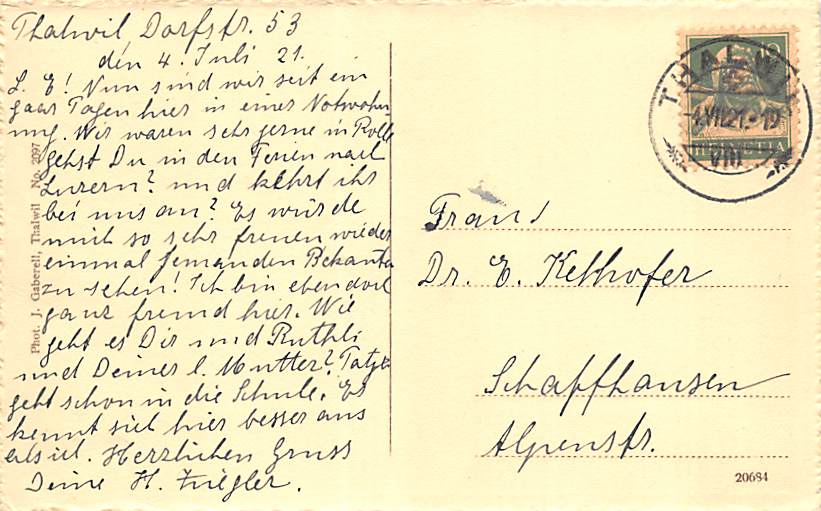 Thalwil Dorfstr. 53
den 4. Juli 21.
L. E! Nun sind wir seit ein
paar Tagen hier in einer Notwohn-
ung. Wir waren sehr gerne in Rolle
gehst Du in den Ferien nach
Luzern? und kehrt ihr
bei uns an? Es würde
mich so sehr freuen wieder
einmal jemanden Bekannten
zu sehen! Ich bin eben doch
ganz fremd hier. Wie
geht es Dir und Ruthli
und Deiner l. Mutter?
geht schon in die Schule. Es
kennt sich hier besser aus
als ich. Herzlichen Gruss
Deine H. Ziegler.
Phot. J. Gaberell, Thalwil No. 2097
THALWIL
4.VII.21.-19
VIII
HELVETIA
10
Frau
Dr. E. Kelhofer
Schaffhausen
Alpenstr.
20684